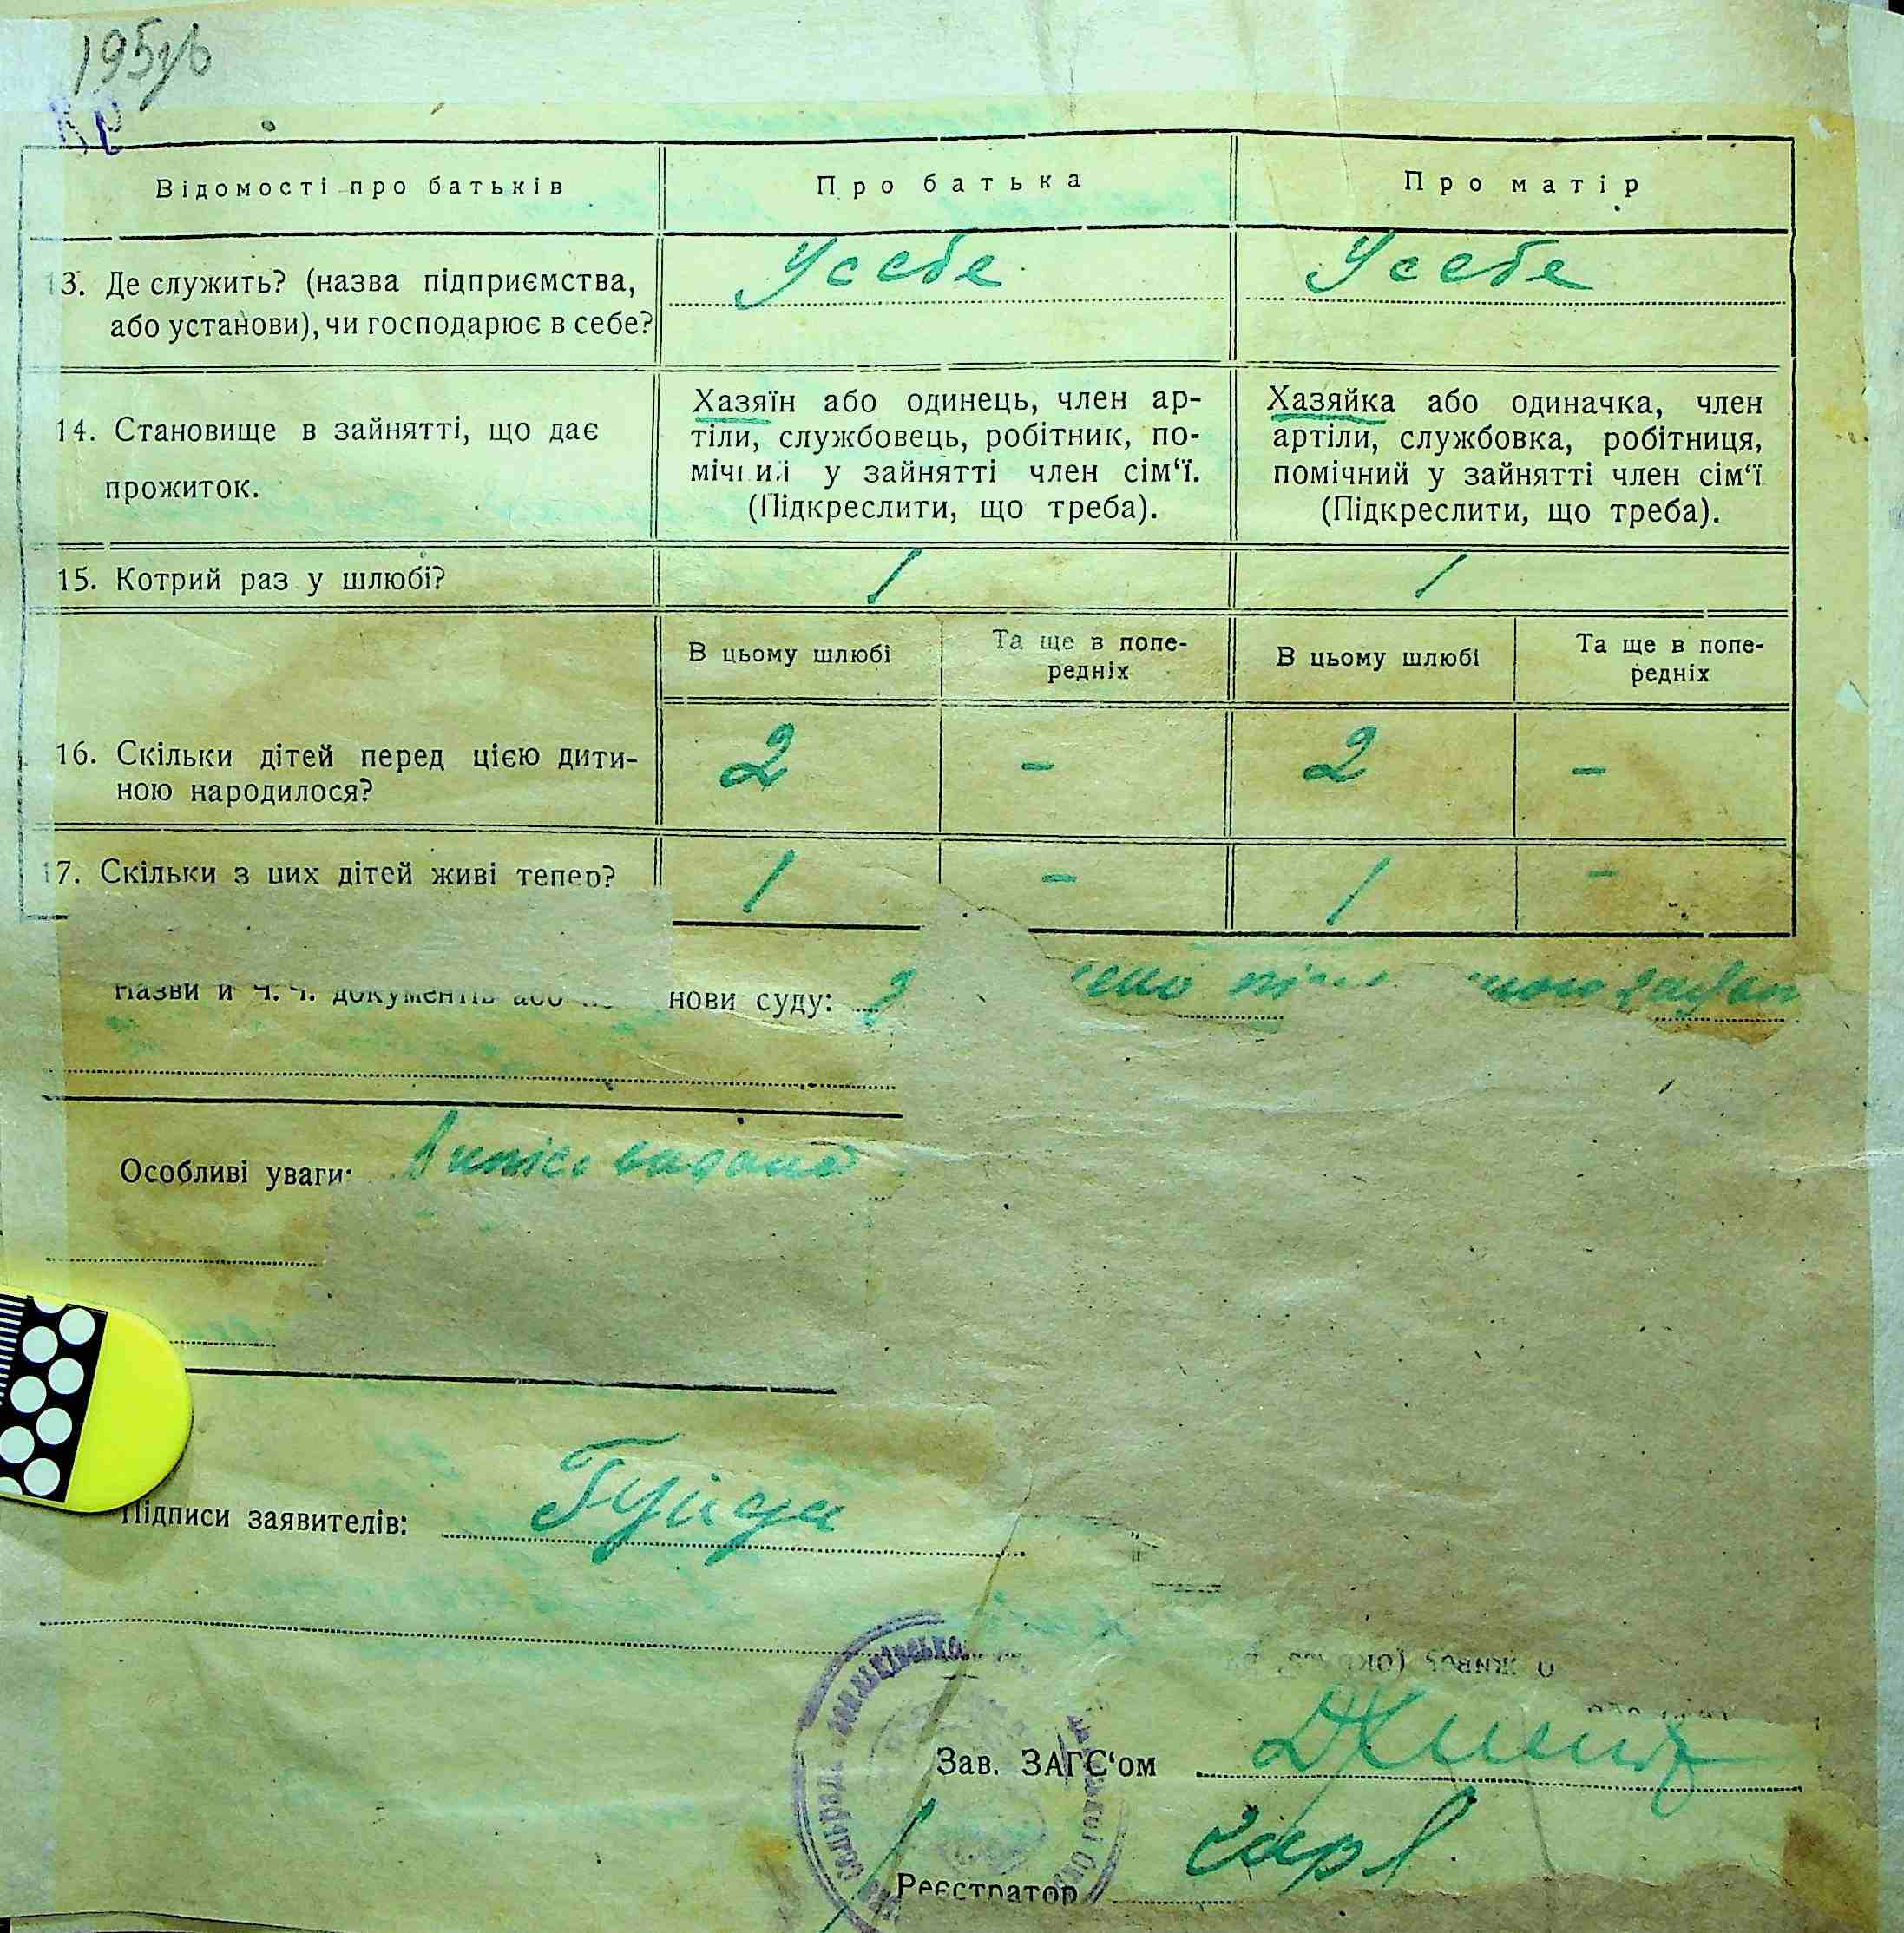 195
Відомості про батьків
Про батька
Про матір
13. Де служить? (назва підприємства,
або установи), чи господарює в себе?
У себе
У себе
14. Становище в зайнятті, що дає
прожиток.
Хазяїн або одинець, член ар-
тіли, службовець, робітник, по-
мічний у зайнятті член сім‘ї.
(Підкреслити, що треба).
Хазяйка або одиначка, член
артіли, службовка, робітниця,
помічний у зайнятті член сім‘ї
(Підкреслити, що треба).
15. Котрий раз у шлюбі?
1
1
В цьому шлюбі
Та ще в попе-
редніх
В цьому шлюбі
Та ще в попе-
редніх
16. Скільки дітей перед цією дити-
ною народилося?
2
–
2
–
17. Скільки з цих дітей живі тепер?
1
–
1
–
Назви й ч. ч. документів або нови суду:
Особливі уваги:
Підписи заявителів:
Зав. ЗАГС‘ом
Реєстратор